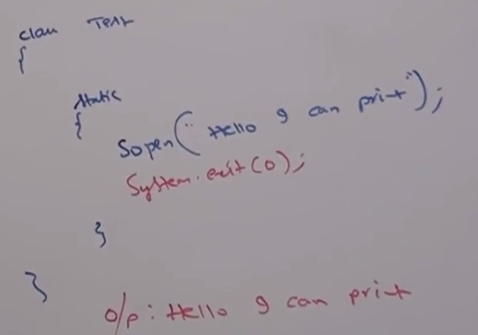 class Test
{
static
{
Sopen("Hello I can print");
System.exit(0);
}
}
O/p: Hello I can print